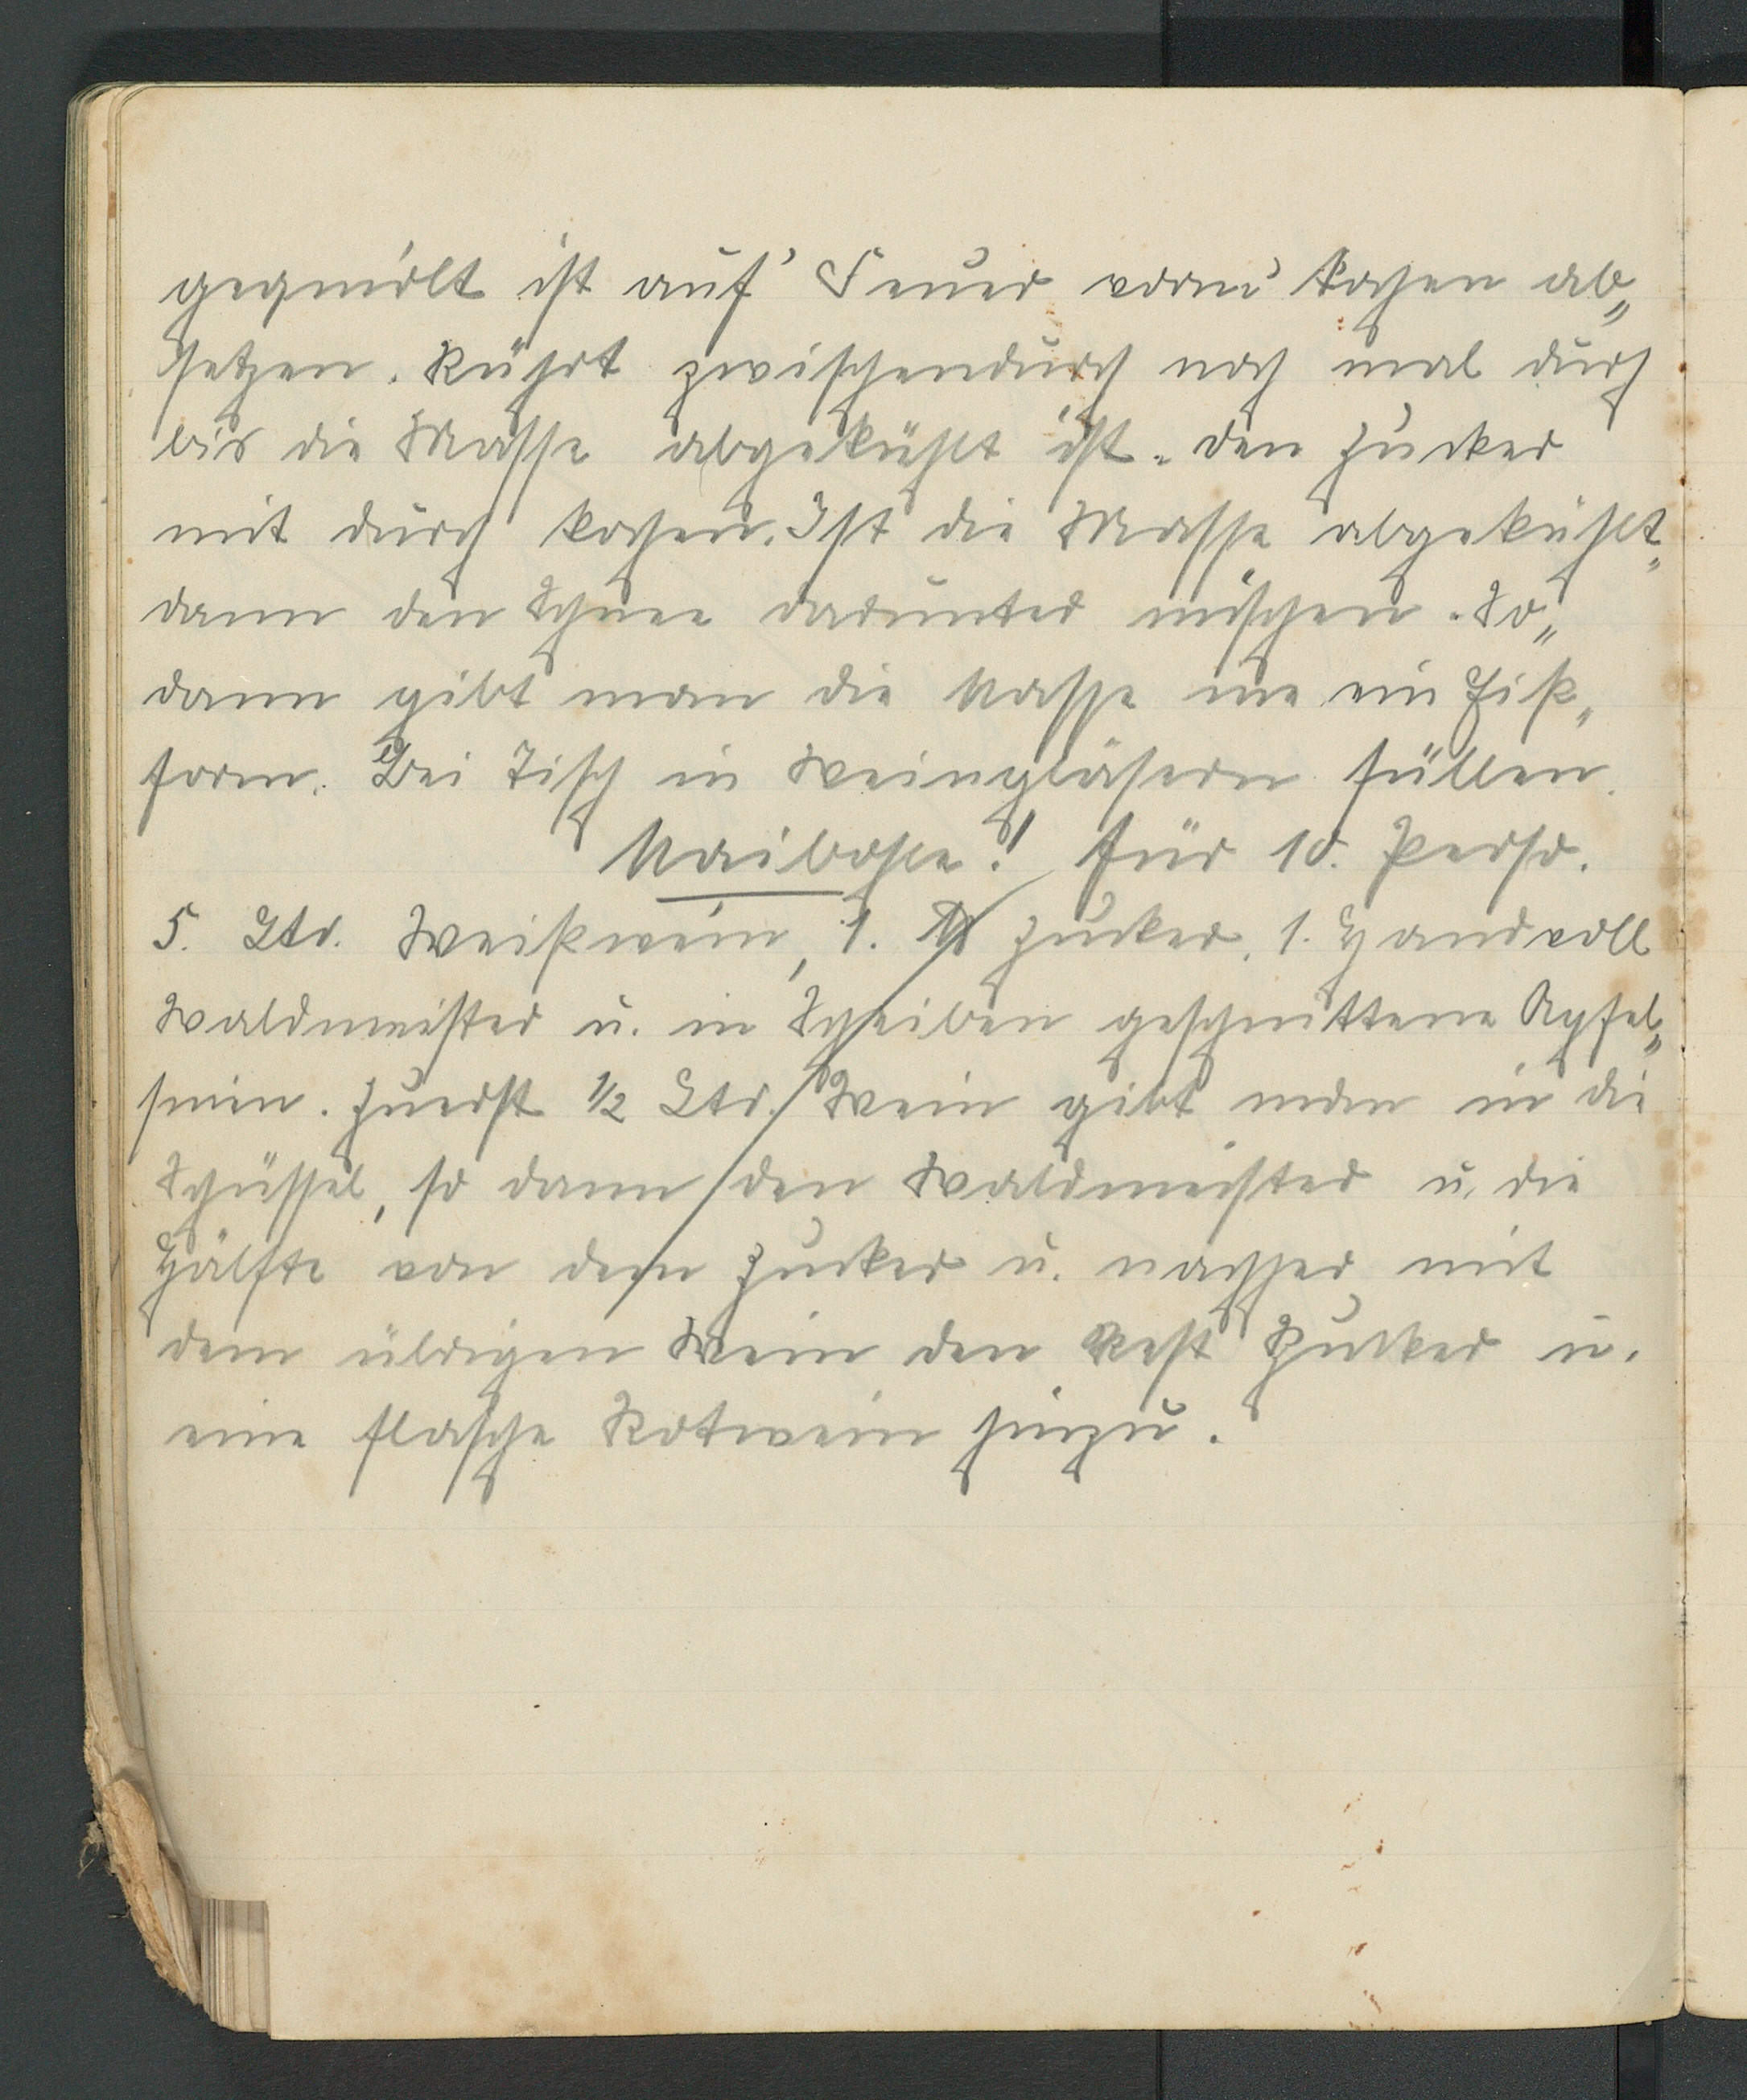 gequirlt ist auf' Feuer vorm kochen ab„
setzen. Rührt zwischendurch noch mal durch
bis die Masse abgekühlt ist. den Zucker
mit durch kochen. Ist die Masse abgekühlt„
dann den Schnee darunter mischen. So„
dann gibt man die Masse ein Eiß„
form. Bei Tisch in Weingläsern füllen.
Maibohle! für 10. Perso.
5. Ltr. Weißwein, 1. ℔ Zucker, 1. Handvoll
Waldmeister u. in Scheiben geschnittene Apfel„
sinen. Zuerst ½ Ltr. Wein gibt man in die
Schüssel, so dann den Waldmeister u. die
Hälfte von dem Zucker u. nachher mit
dem übrigen Wein den Rest Zucker u.
eine flasche Rotwein hinzu.